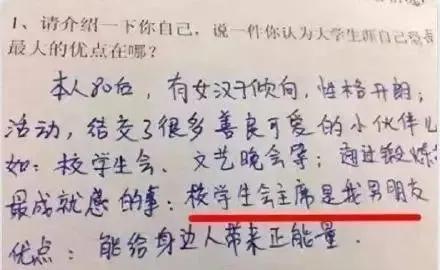 1、请介绍一下你自己，说一件你认为大学生涯自己最
最大的优点在哪？
本人80后，有女汉子倾向，性格开朗；
活动，结交了很多善良可爱的小伙伴
如：校学生会、文艺晚会等；通过锻炼
最成就感的事：校学生会主席是我男朋友
优点：能给身边人带来正能量．